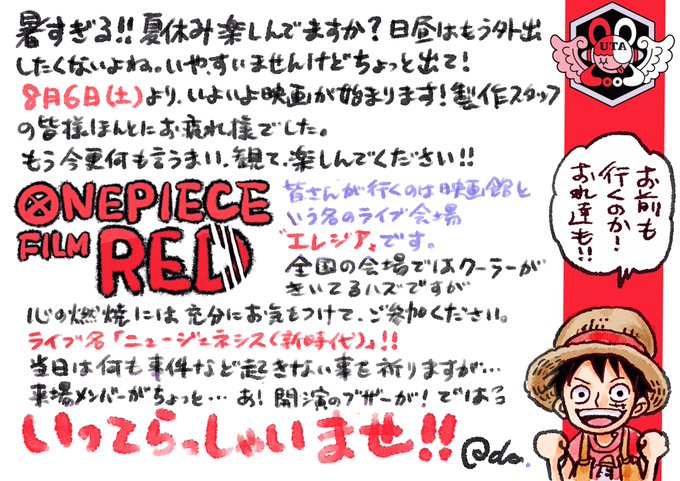 暑すぎる!!夏休み楽しんでますか?日昼はもう外出
したくないよね。いや、すいませんけどちょっと出て!
8月6日(土)より、いよいよ映画が始まります!製作スタッフ
の皆様ほんとにお疲れ様でした。
もう今更何も言うまい、観て、楽しんでください!!
ONE PIECE
FILM RED
皆さんが行くのは映画館と
いう名のライブ会場
"エレジア"です。
全国の会場ではクーラーが
きいてるハズですが
心の燃焼には充分にお気をつけて、ご参加ください。
ライブ名「ニュージェネシス(新時代)」!!
当日は何も事件など起きない事を祈りますが…
来場メンバーがちょっと… あ!開演のブザーが!ではっ
いってらっしゃいませ!!
UTA
お前も
行くのか!
おれ達も!!